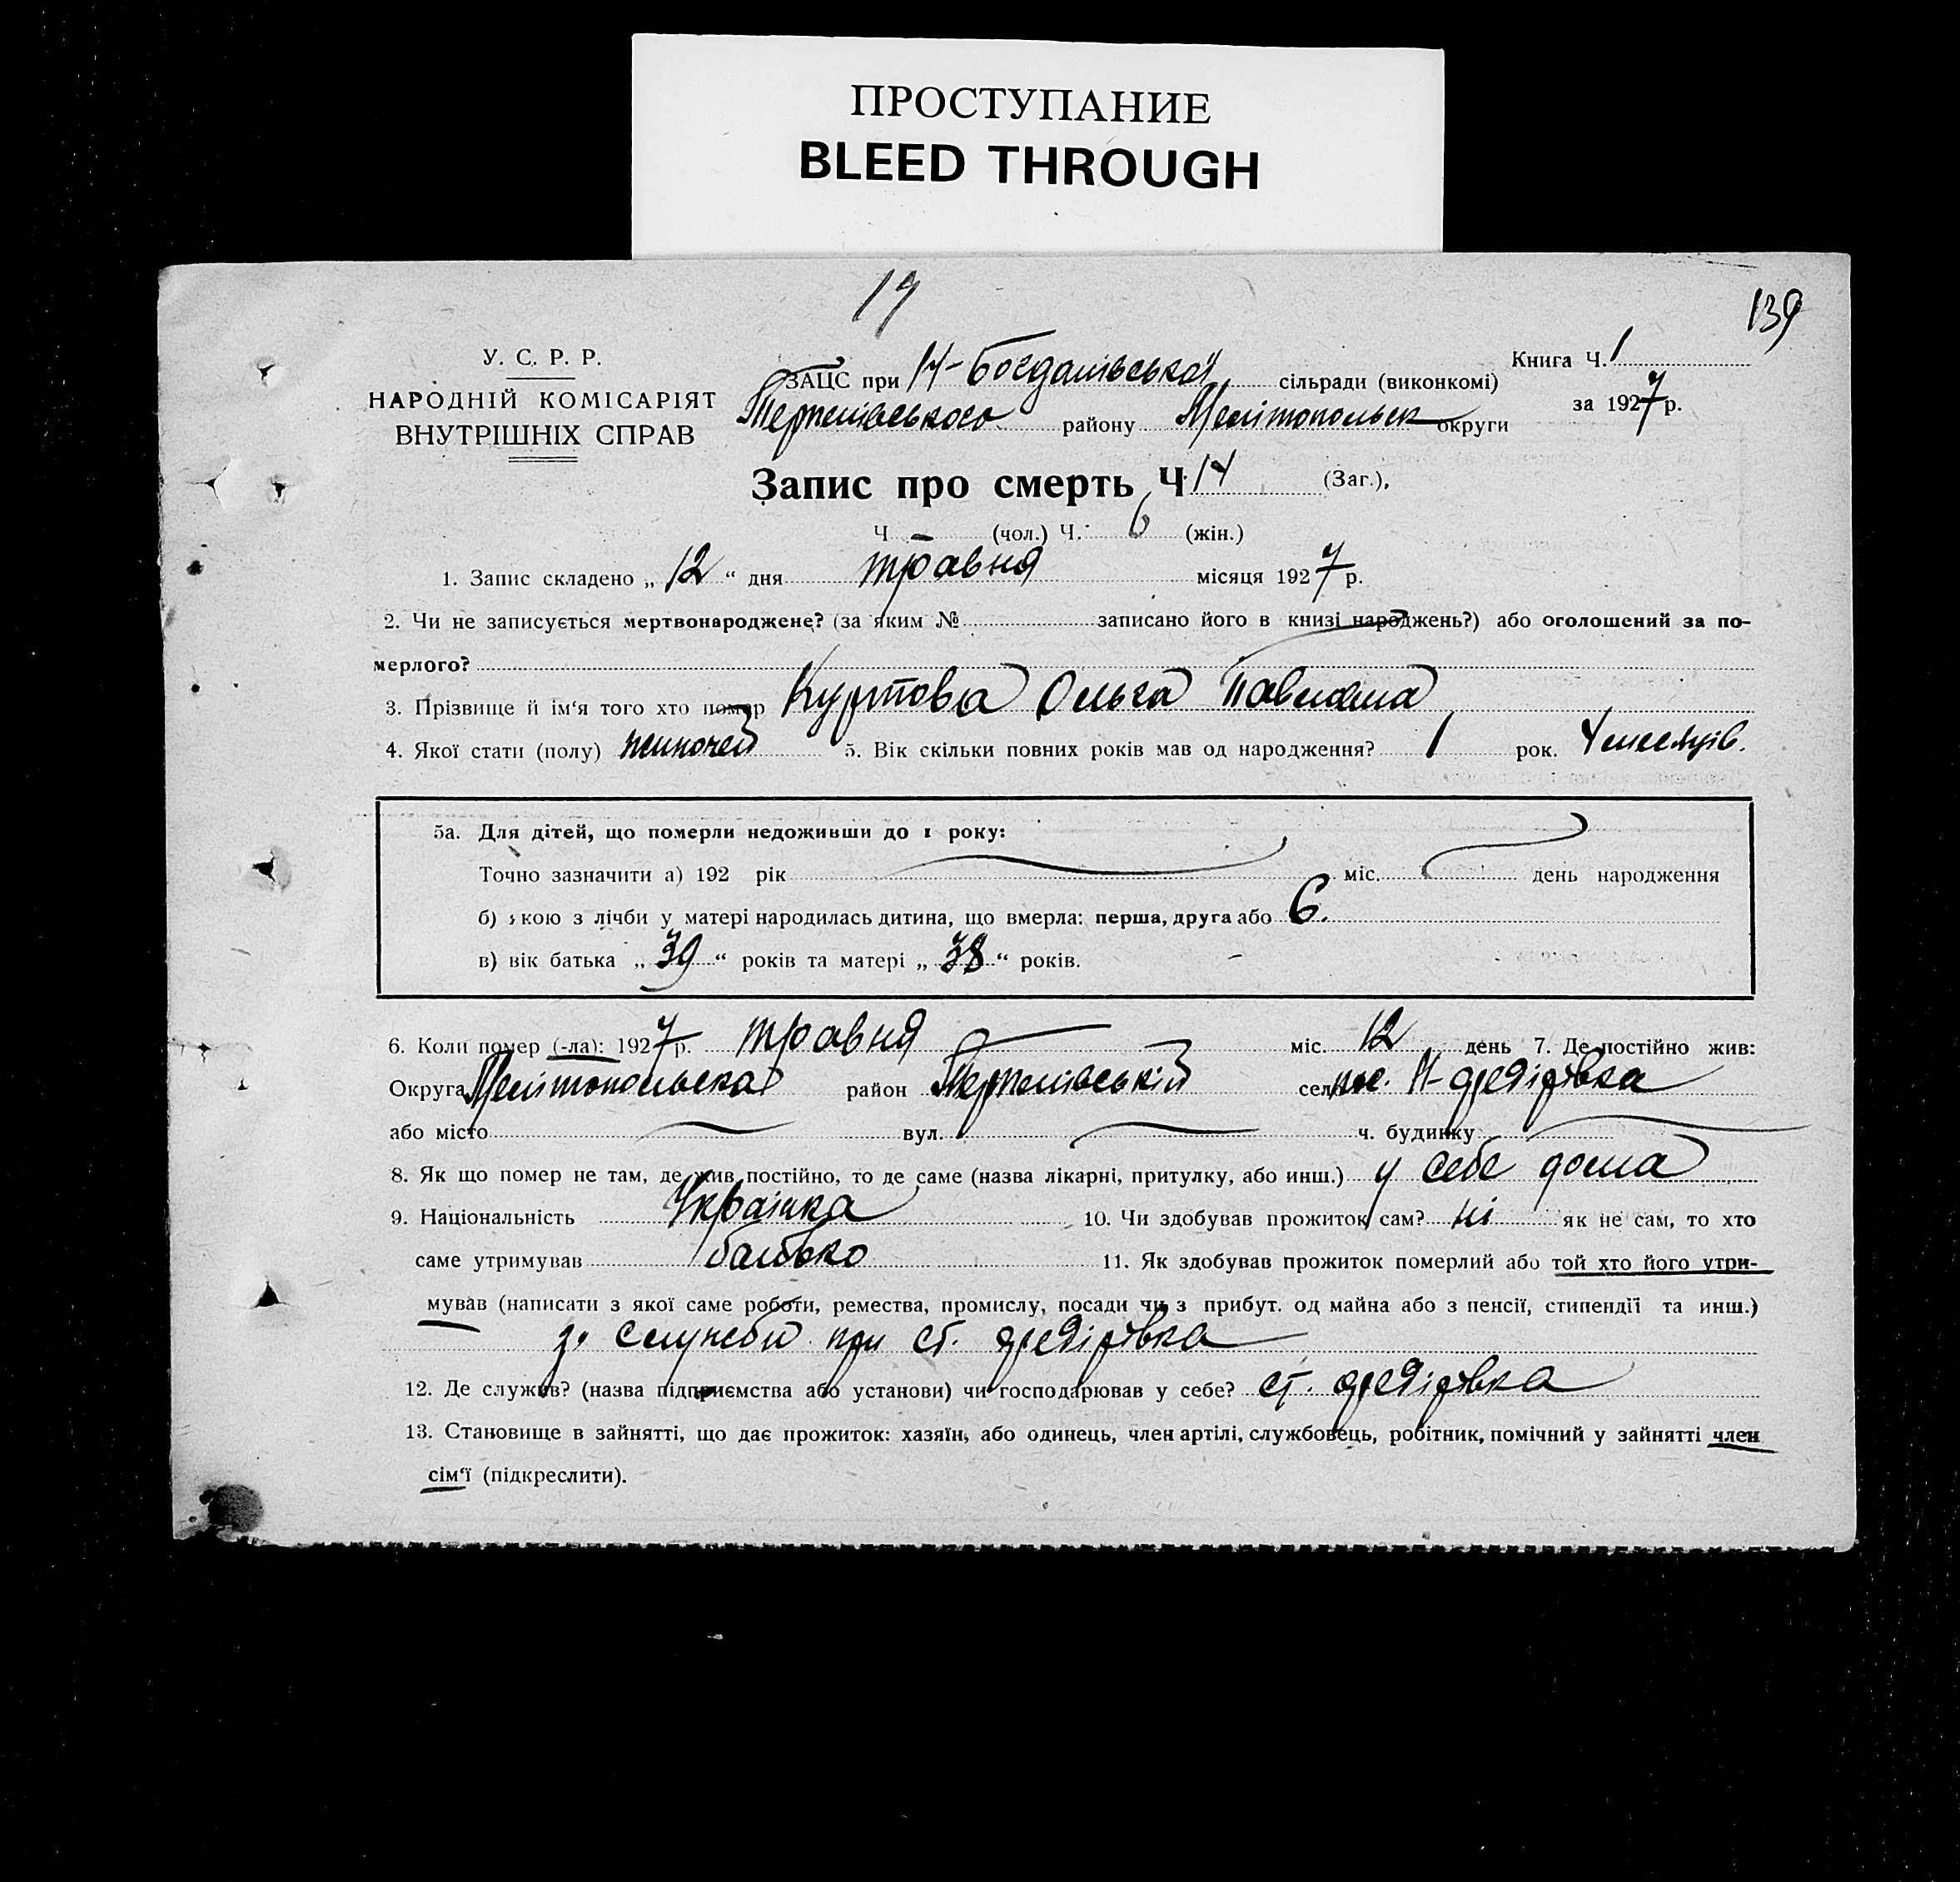 ПРОСТУПАНИЕ
BLEED THROUGH
19
139
У. С. Р. Р.
НАРОДНІЙ КОМІСАРІЯТ
ВНУТРІШНІХ СПРАВ
ЗАЦС при Н-Богданівській сільради (виконкомі)
Терпеніївського району Мелітопольск округи
Книга Ч. 1
за 1927 р.
Запис про смерть Ч 14 (Заг.),
Ч - (чол.) Ч. 6 (жін.)
1. Запис складено „ 12 “ дня травня місяця 1927 р.
2. Чи не записується мертвонароджене? (за яким № записано його в книзі народжень?) або оголошений за по-
мерлого?
3. Прізвище й ім'я того хто помер Куртова Ольга Павловна
4. Якої стати (полу) жиночей 5. Вік скільки повних років мав од народження? 1 рок. 4 месяців.
5а. Для дітей, що померли недоживши до 1 року:
Точно зазначити а) 192 рік міс. день народження
б) якою з лічби у матері народилась дитина, що вмерла: перша, друга або 6.
в) вік батька „ 39 “ років та матері „ 38 “ років.
6. Коли помер (-ла): 1927 р. травня міс. 12 день 7. Де постійно жив:
Округа Мелітопольска район Терпеніївській село пос. Н-
або місто вул. ч. будинку
8. Як що помер не там, де жив постійно, то де саме (назва лікарні, притулку, або инш.) у себе дома
9. Національність Українка 10. Чи здобував прожиток сам? ні як не сам, то хто
саме утримував батько 11. Як здобував прожиток померлий або той хто його утри-
мував (написати з якої саме роботи, ремества, промислу, посади чи з прибут. од майна або з пенсії, стипендії та инш.)
з. служби при ст.
12. Де служив? (назва підприємства або установи) чи господарював у себе? ст.
13. Становище в зайнятті, що дає прожиток: хазяїн, або одинець, член артілі, службовець, робітник, помічний у зайнятті член
сім'ї (підкреслити).